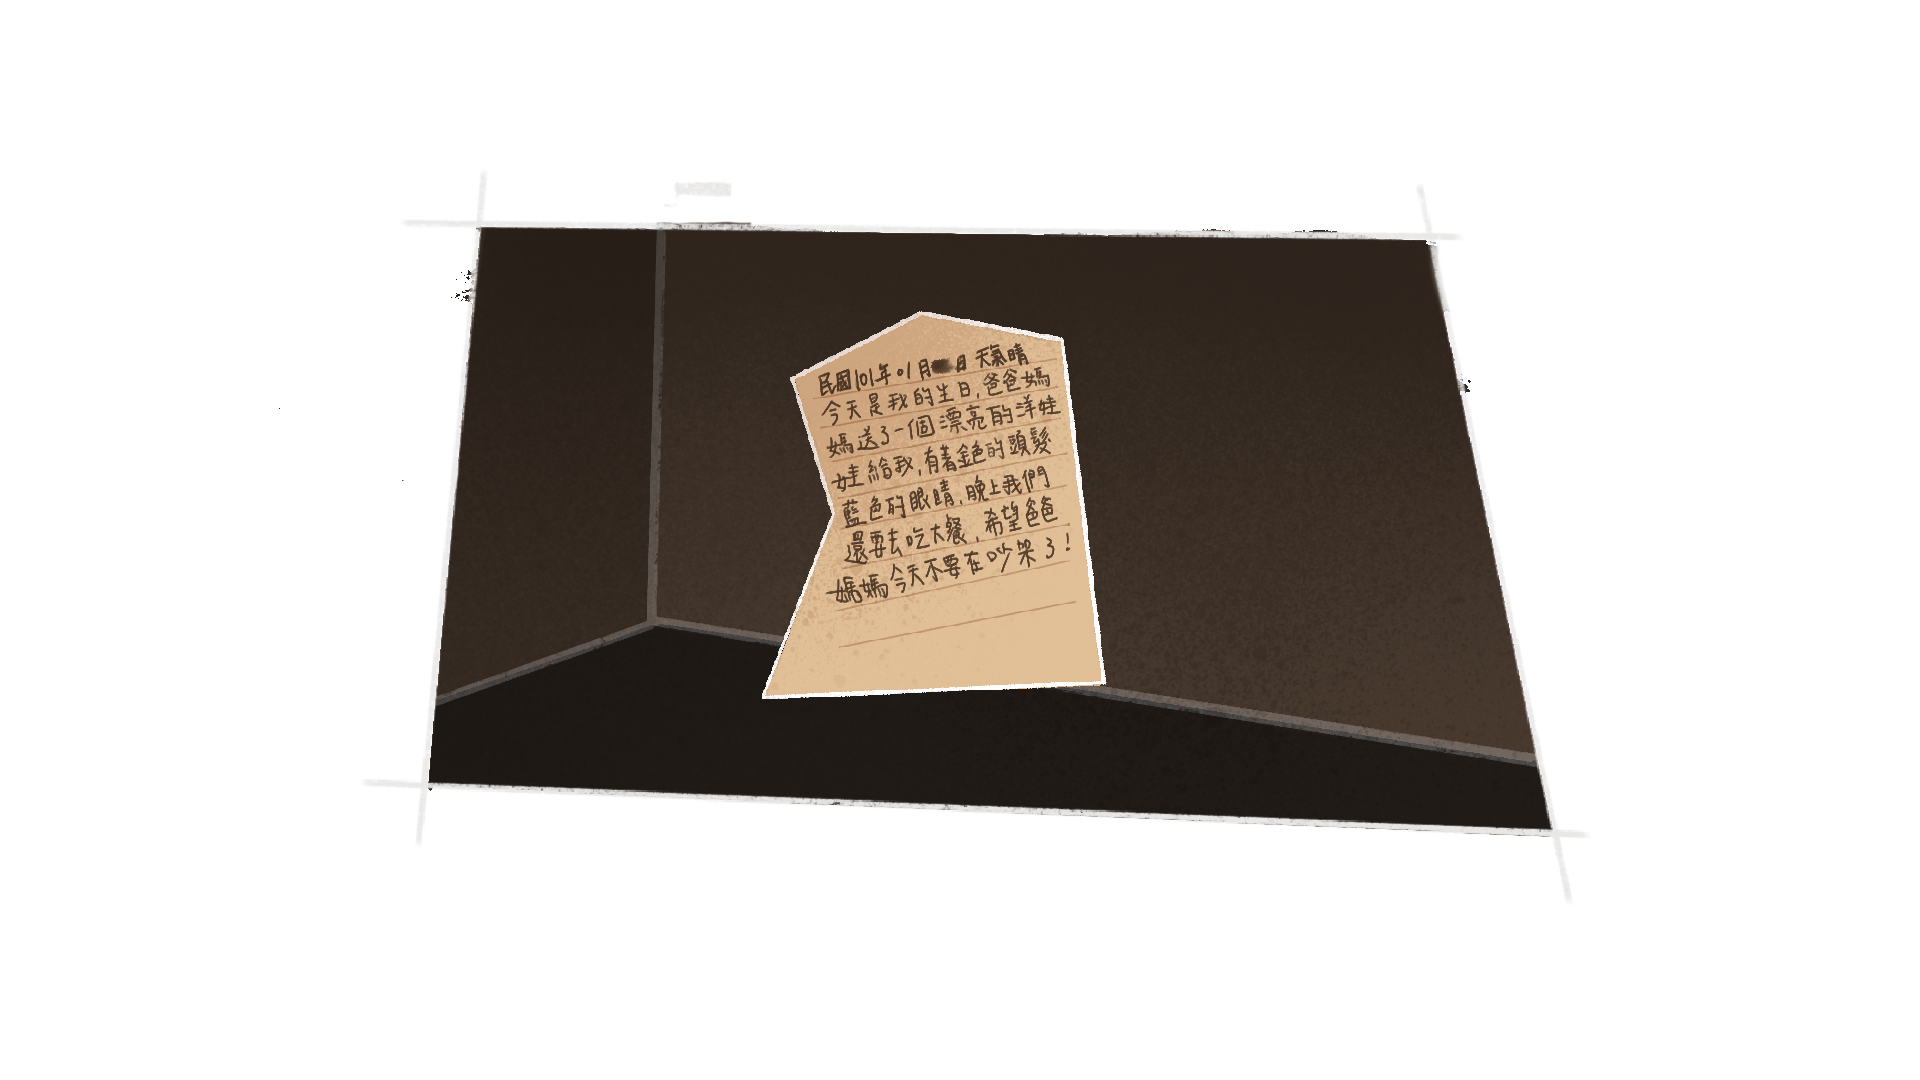 民國101年01月 日 天氣晴
今天是我的生日,爸爸媽
媽送了一個漂亮的洋娃
娃給我,有著金色的頭髮
藍色的眼睛,晚上我們
還要去吃大餐,希望爸爸
媽媽今天不要在吵架了!